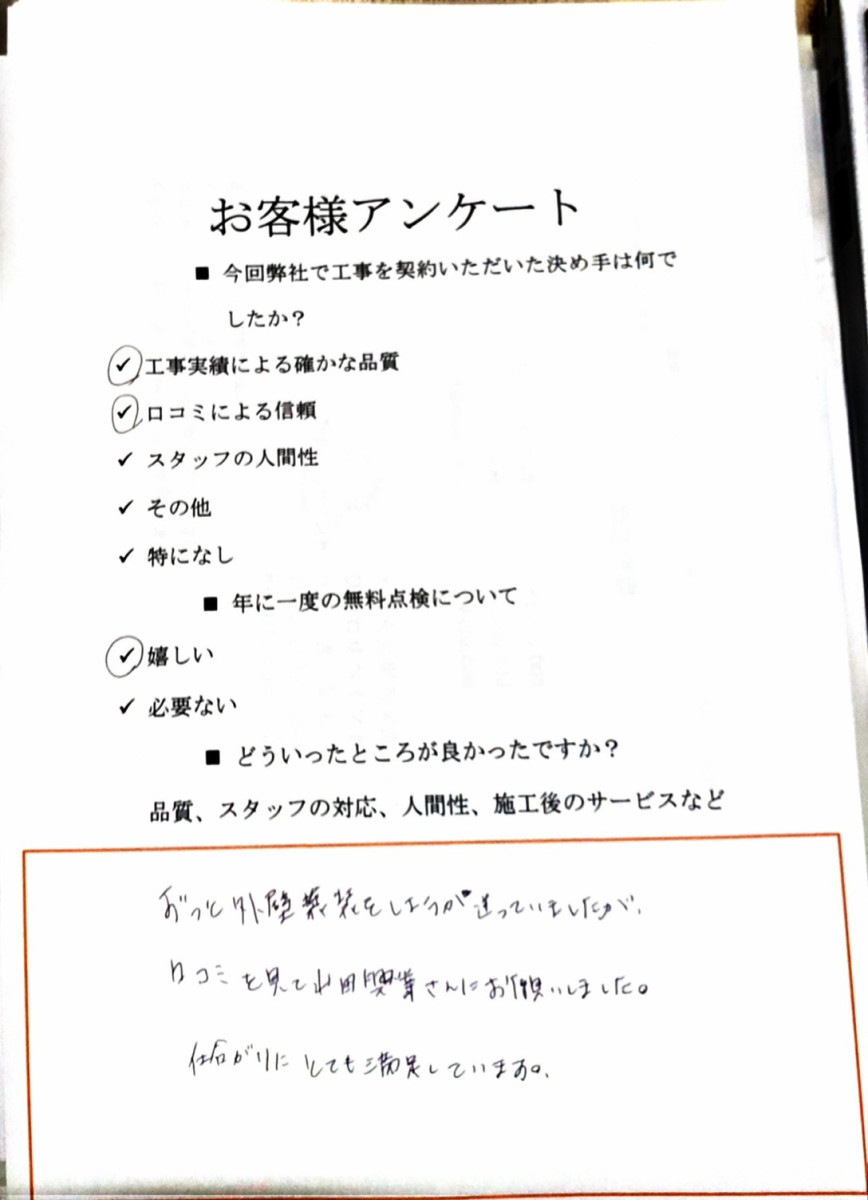 お客様アンケート
■ 今回弊社で工事を契約いただいた決め手は何で
したか？
✓ 工事実績による確かな品質
✓ 口コミによる信頼
✓ スタッフの人間性
✓ その他
✓ 特になし
■ 年に一度の無料点検について
✓ 嬉しい
✓ 必要ない
■ どういったところが良かったですか？
品質、スタッフの対応、人間性、施工後のサービスなど
ずっと外壁塗装をしようか迷っていましたが、
口コミを見て山田興業さんにお願いしました。
仕上がりにとても満足しています。